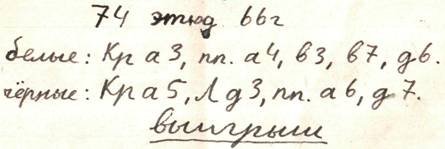 74 этюд 66г
белые: Кр а3, пп. а4, в3, в7, д6.
чёрные: Кр а5, Л д3, пп. а6, д7.
выигрыш